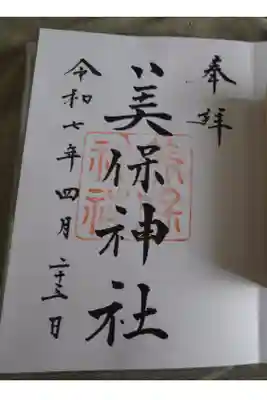 奉拝
美保神社
令和七年四月二十三日